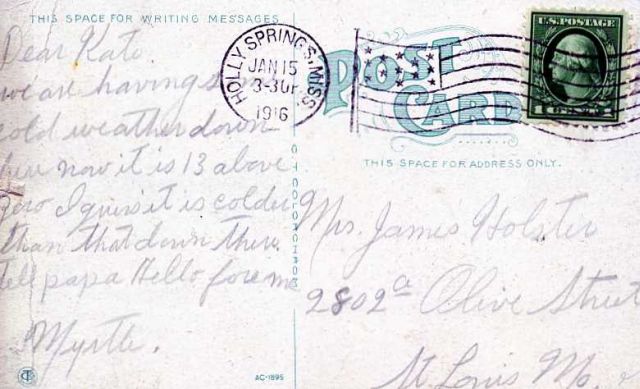 THIS SPACE FOR WRITING MESSAGES
Dear Kate
we are having some
cold weather down
here now it is 13 above
zero I guess it is colder
than that down there.
tell papa Hello fore me
Myrtle.
HOLLY SPRINGS, MISS.
JAN 15
1916
U.S. POSTAGE
1 CENT 1
POST
CARD
THIS SPACE FOR ADDRESS ONLY.
Mrs. James Holster
2802a Olive Street
St Louis Mo
AC-1895